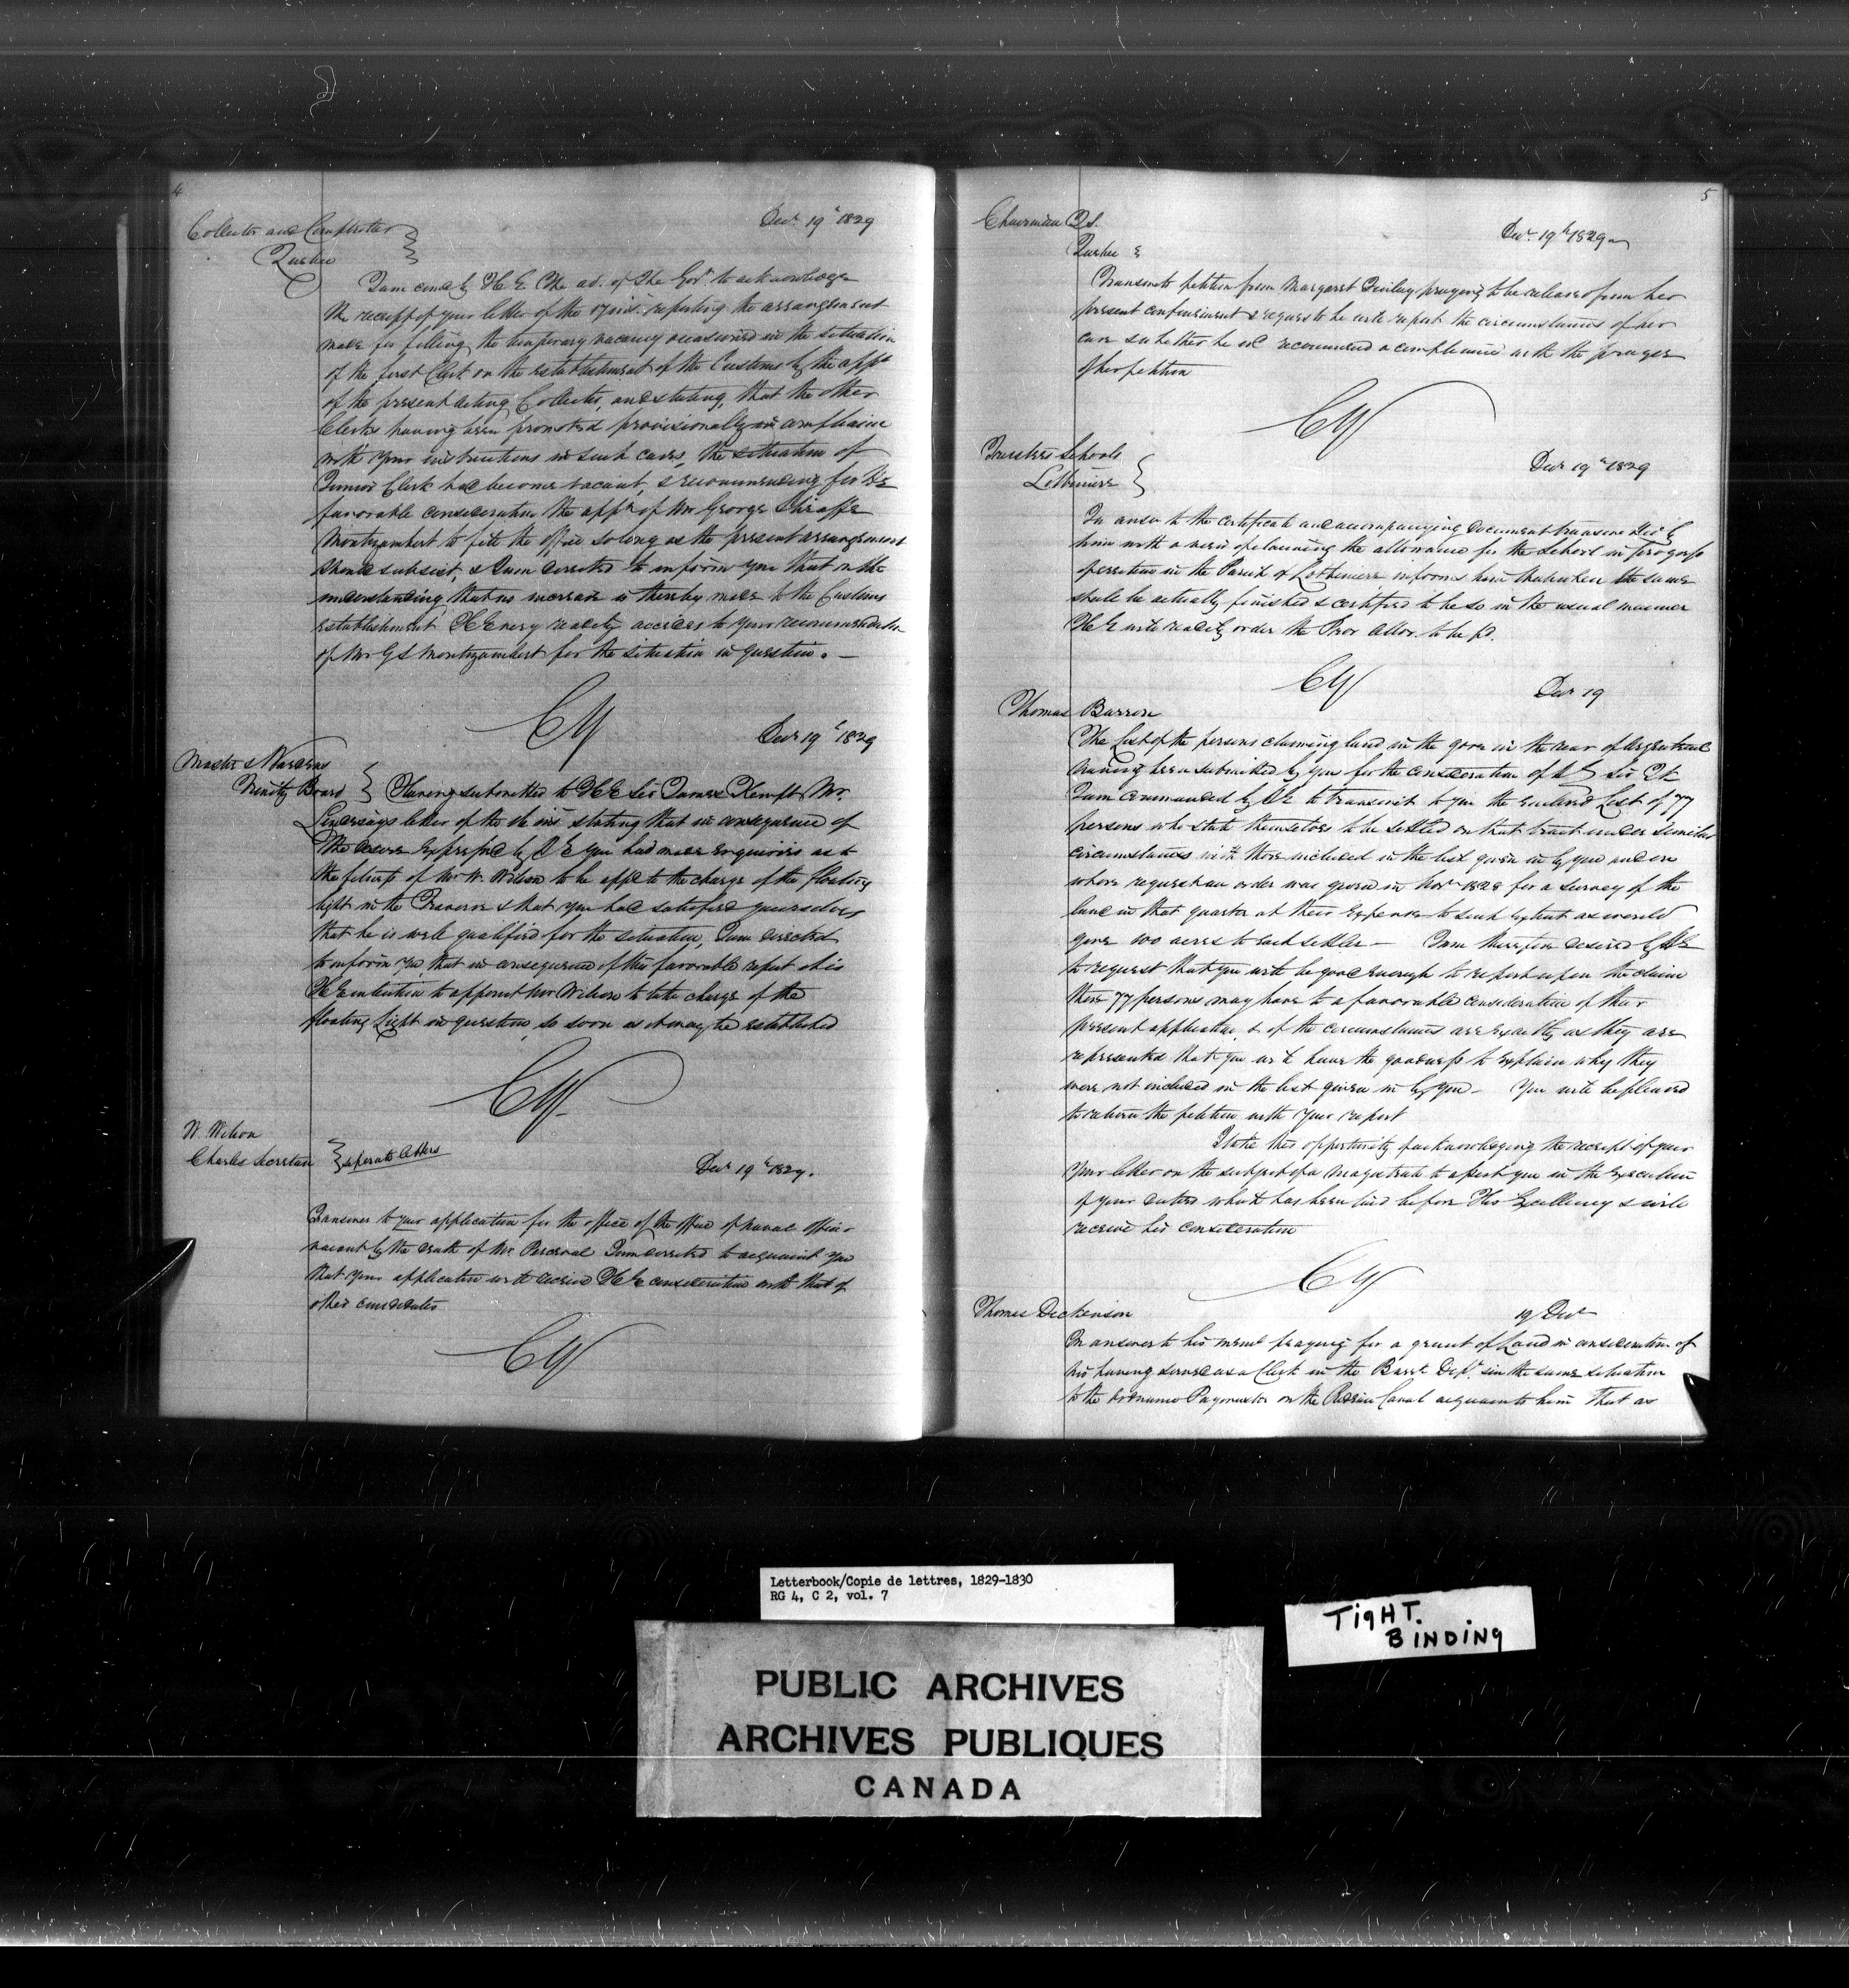 4
Collector and Comptroller
Quebec
Decr 19th 1829
I am comd by H E The ad. of The Govt to acknowledge
the receipt of your letter of the 17 inst. reporting the arrangement
made for filling the temporary vacancy occasioned in the situation
of the first Clerk on the establishment of the Customs by the appt
of the present acting Collector, and stating, that the other
Clerks having been promoted provisionally in compliance
with your instructions in such cases, the situation of
Junior Clerk had become vacant, & recommending for His
favorable consideration the appt of Mr George Shiraffe
Montizambert to fill the office so long as the present arrangement
should subsist, & I am directed to inform you that on the
understanding that no increase is thereby made to the Customs
establishment H E very readily accedes to your recommendation
of Mr G S Montizambert for the situation in question. —
CY
Decr 19th 1829
Master & Wardens
Trinity Board
Having submitted to H E Sir James Kempt Mr.
Lindsays letter of the inst stating that in consequence of
the desire expressed by H E you had made enquiries as to
the fitness of Mr W. Wilson to be appd to the charge of the floating
light in the Traverse & that you had satisfied yourselves
that he is well qualified for the situation, I am directed
to inform you, that in consequence of this favorable report it is
H E intention to appoint Mr Wilson to take charge of the
floating Light in question, so soon as it may be established
CY
W. Wilson
Charles Secretan
separate letters
Decr 19th 1829.
In answer to your application for the office of the office of Naval Officer
vacant by the death of Mr. Perceval I am directed to acquaint you
that your application will receive H E consideration with that of
other candidates
CY
5
Chairman Q S.
Quebec
Decr 19th 1829
Transmits petition from Margaret Finlay praying to be released from her
present confinement & requests he will report the circumstances of her
case & whether he wd recommend a compliance with the prayer
of her petition
CY
Trustees Schools
Lotbiniere
Decr 19th 1829
In answ to the certificate and accompanying document transmitted by
him with a view of claiming the allowance for the School in progress
operation in the Parish of Lotbiniere informs him that when the same
shall be actually finished & certified to be so in the usual manner
H E will readily order the Prov allow. to be pd.
CY
Decr 19
Thomas Barron
The List of the persons claiming land in the gore in the rear of Argenteuil
having been submitted by you for the consideration of H E Sir J K
I am commanded by H E to transmit to you the enclosed List of 77
persons who state themselves to be settled on that tract under similar
circumstances with those included in the list given in by you and on
whose request an order was given in Novr 1828 for a survey of the
land in that quarter at their expense to such extent as would
give 100 acres to each settler — I am therefore desired by H E
to request that you will be good enough to report upon the claim
these 77 persons may have to a favorable consideration of their
present application & if the circumstances are exactly as they are
represented that you will have the goodness to explain why they
were not included in the list given in by you — You will be pleased
to return the petition with your report
I take this opportunity of acknowledging the receipt of your
your letter on the subject of a Magistrate to assist you in the execution
of your duties which has been laid before His Excellency & will
receive his consideration
CY
Thomas Dickenson
19 Decr
In answer to his meml praying for a grant of Land in consideration of
his having served as a Clerk in the Barrk Dept. & in the same situation
to the ordnance Paymaster on the Rideau Canal acquaints him that as
Letterbook/Copie de lettres, 1829-1830
RG 4, C 2, vol. 7
TIGHT.
BINDING
PUBLIC ARCHIVES
ARCHIVES PUBLIQUES
CANADA